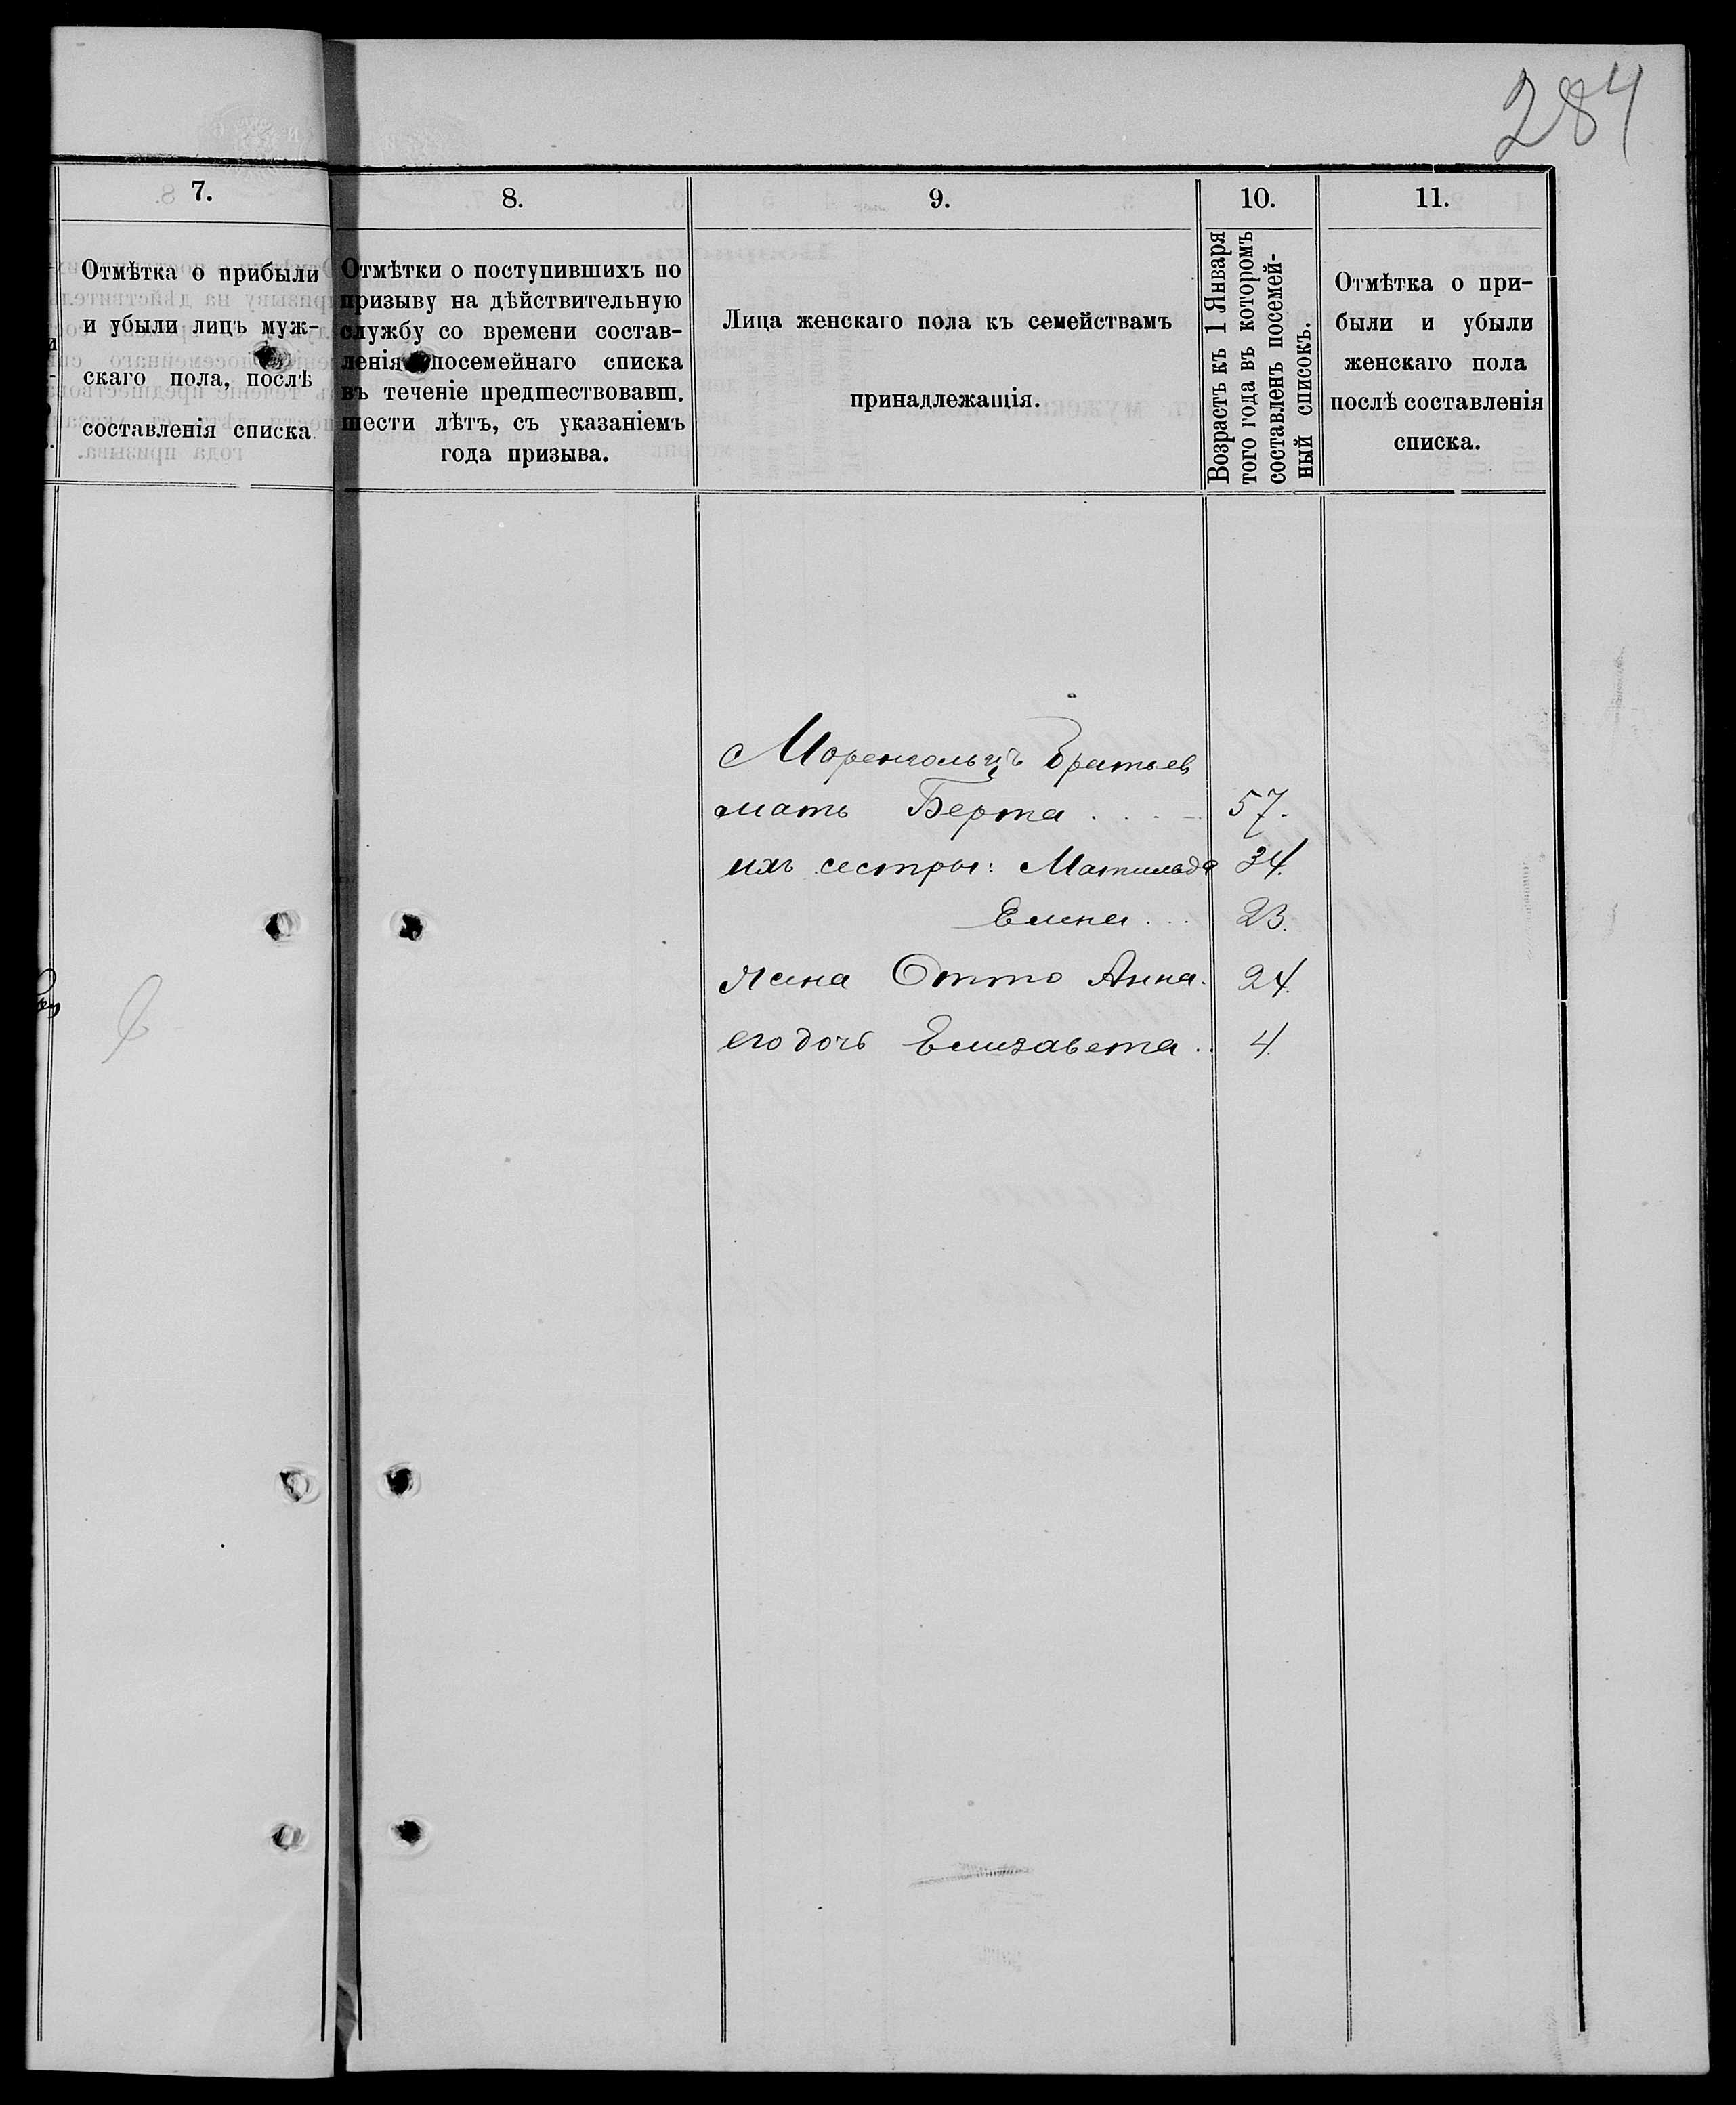 284
7.
Отмѣтка о прибыли
и убыли лицъ муж-
скаго пола, послѣ
составленія списка
8.
Отмѣтки о поступившихъ по
призыву на дѣйствительную
службу со времени состав-
ленія посемейнаго списка
въ теченіе предшествовавш.
шести лѣтъ, съ указаніемъ
года призыва.
9.
Лица женскаго пола къ семействамъ
принадлежащія.
10.
Возрастъ къ 1 Января
того года въ которомъ
составленъ посемей-
ный списокъ.
11.
Отмѣтка о при-
были и убыли
женскаго пола
послѣ составленія
списка.
Моренгольцъ братьевъ
мать Берта . . . 57.
ихъ сестры: Матильда 34.
Елена . . . 23.
жена Отто Анна. 24.
его дочь Елизавета . . 4.